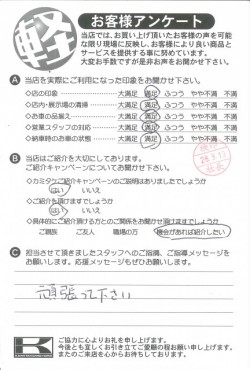 軽
お客様アンケート
当店では、お買い上げ頂いたお客様の声を可能
な限り現場に反映し、お客様により良い商品と
サービスを提供する事に努めています。
大変お手数ですが是非お声をお聞かせ下さい。
A 当店を実際にご利用になった印象をお聞かせ下さい。
◇店の印象 大満足 満足 ふつう やや不満 不満
◇店内・展示場の清掃 大満足 満足 ふつう やや不満 不満
◇お車の品揃え 大満足 満足 ふつう やや不満 不満
◇営業スタッフの対応 大満足 満足 ふつう やや不満 不満
◇納車時のお車の状態 大満足 満足 ふつう やや不満 不満
B 当店はご紹介を大切にしております。
ご紹介キャンペーンについてお聞かせ下さい。
◇カミタケご紹介キャンペーンのご説明はありましたでしょうか
はい いいえ
◇ご紹介を頂けますでしょうか
はい いいえ
◇具体的にご紹介頂ける方との関係をお聞かせ頂けますでしょうか
ご親族 ご友人 職場の方 機会があれば紹介したい
C 担当させて頂きましたスタッフへのご指摘、ご指導メッセージを
お願いします。応援メッセージもぜひお願いします。
頑張って下さい
K
ご協力に心よりお礼を申し上げます。
今後とも宜しくお引き立てご愛顧の程お願い申し上げます。
またのご来店を心からお待ちしております。